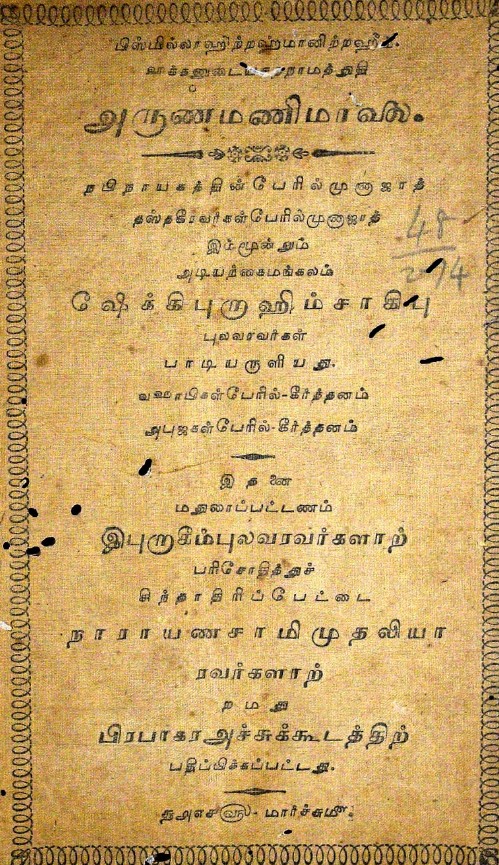 பிஸ்மில்லாஹிற்றஹ்மானிற்றஹீம்.
அருணமணிமாலை.
நபிநாயகத்தின்பேரில்முனாஜாத்
தஸ்தகீரவர்கள்பேரில்முனாஜாத்
இம்மூன்றும்
அடியற்கைமங்கலம்
ஷேக்கிபுருஹிம்சாகிபு
புலவரவர்கள்
பாடியருளியது.
வஹாபிகள்பேரில்-கீர்த்தனம்
அபுஜகள்பேரில்-கீர்த்தனம்
48
இதனை
மதுலாப்பட்டணம்
இபுறுகீம்புலவரவர்களாற்
பரிசோதித்துச்
சிந்தாதிரிப்பேட்டை
நாராயணசாமிமுதலியா
ரவர்களாற்
றமது
பிரபாகரஅச்சுக்கூடத்திற்
பதிப்பிக்கப்பட்டது.
மார்ச்சுமீ